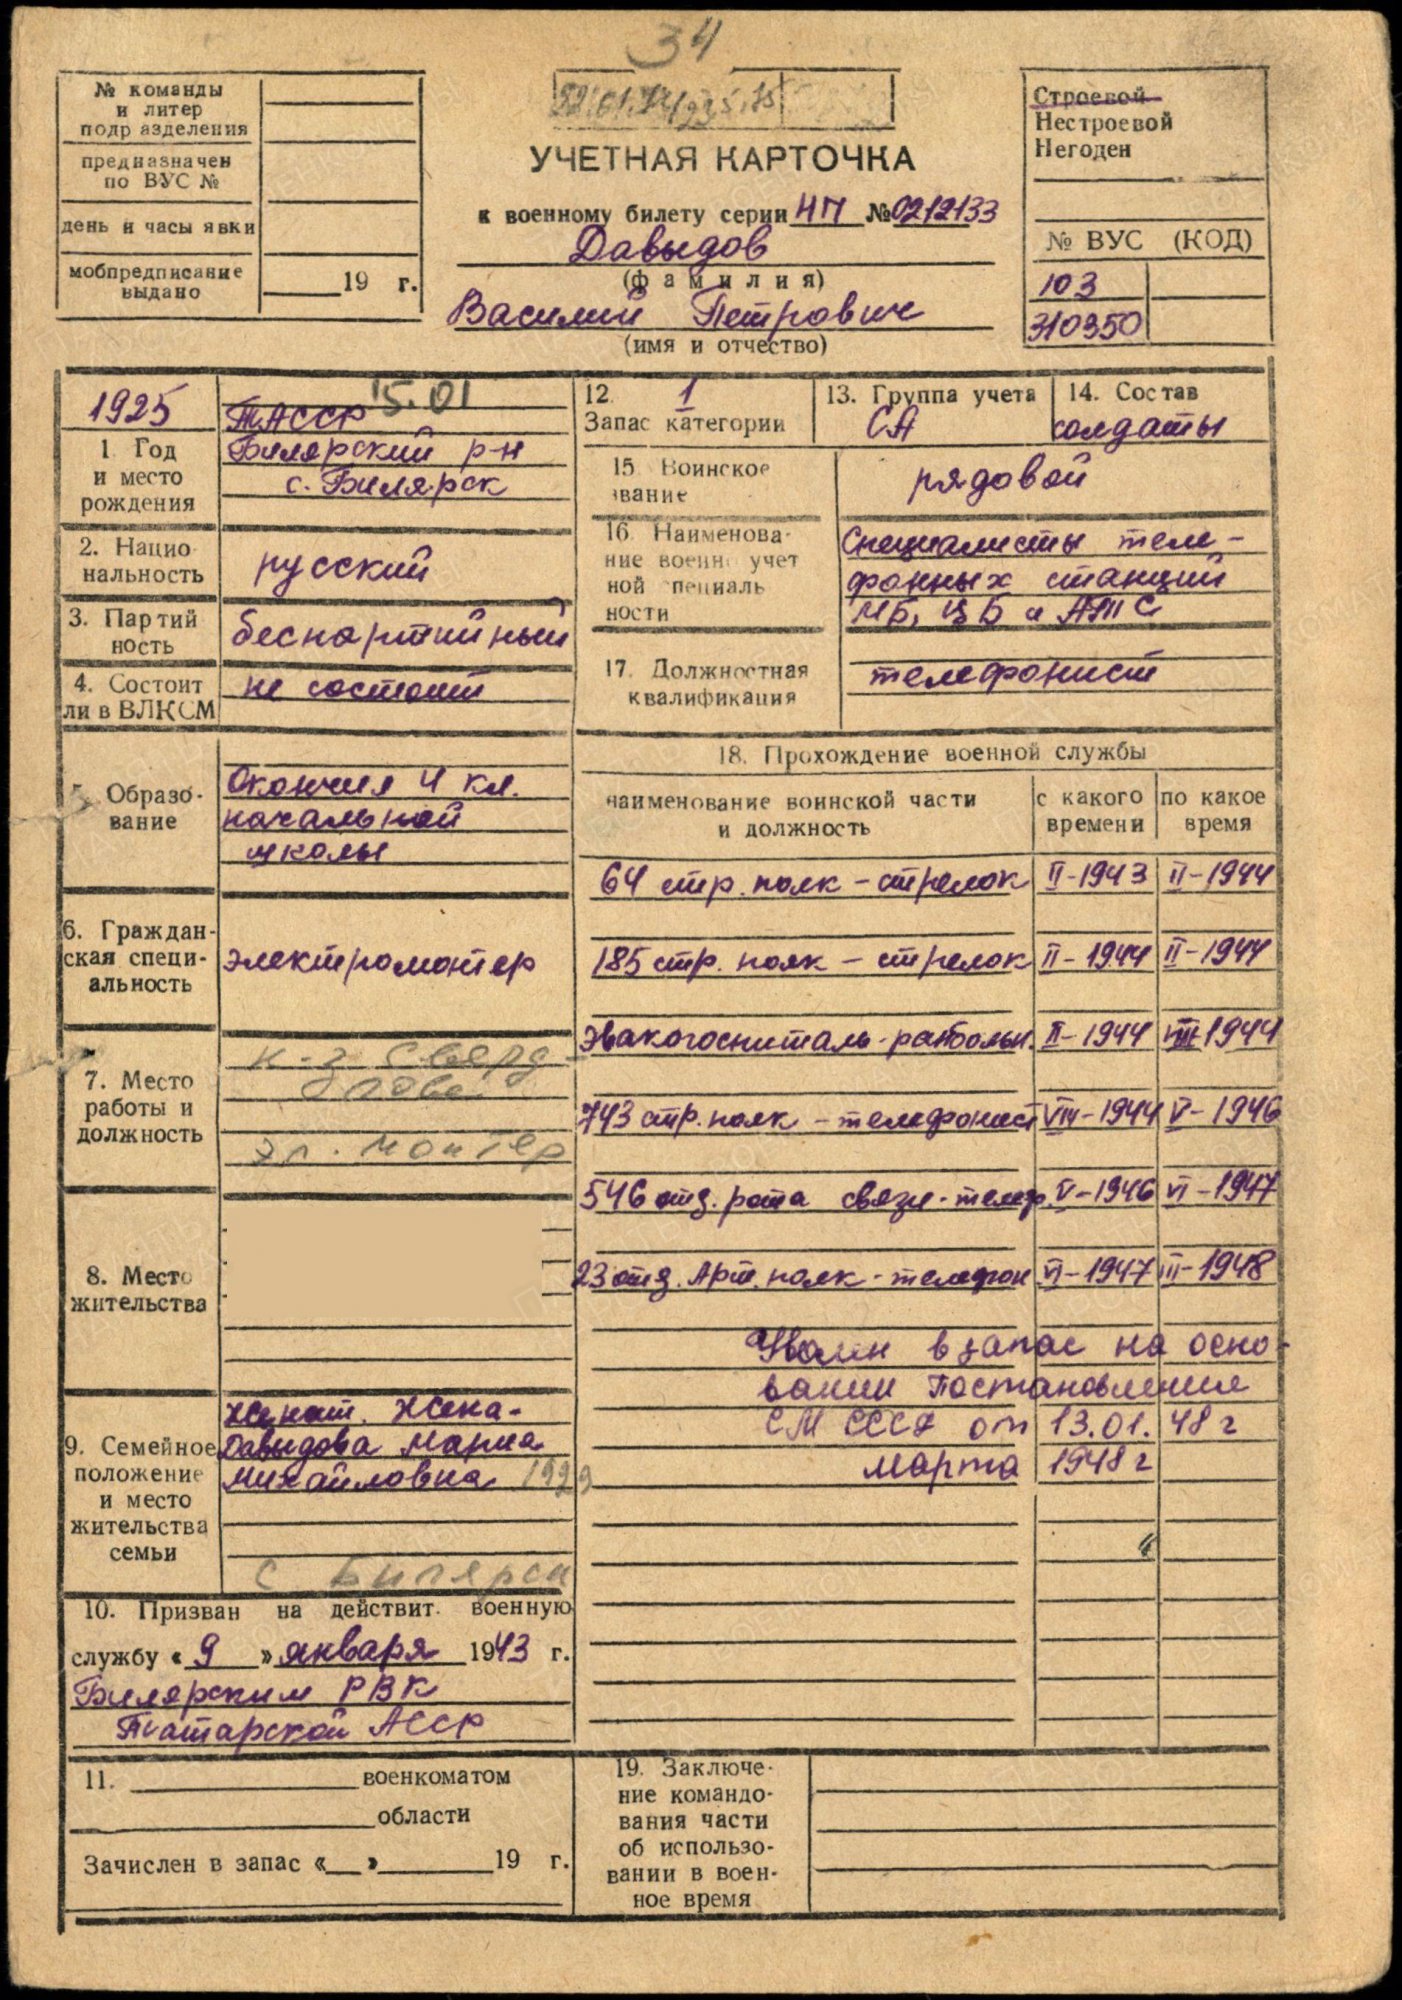 34
№ команды
и литер
подразделения
предназначен
по ВУС №
день и часы явки
мобпредписание
выдано
19 г.
УЧЕТНАЯ КАРТОЧКА
к военному билету серии НП № 0212133
Давыдов
(фамилия)
Василий Петрович
(имя и отчество)
Строевой
Нестроевой
Негоден
№ ВУС (КОД)
103
310350
1925
1. Год
и место
рождения
15.01
ТАССР
Билярский р-н
с. Билярск
2. Нацио-
нальность
русский
3. Партий
ность
беспартийный
4. Состоит
ли в ВЛКСМ
не состоит
5. Образо-
вание
Окончил 4 кл.
начальной
школы
6. Граждан-
ская специ-
альность
электромонтер
7. Место
работы и
должность
к-з Сверд-
лова
эл. монтер
8. Место
жительства
9. Семейное
положение
и место
жительства
семьи
Женат. Жена-
Давыдова Мария
Михайловна 1929
с Билярск
10. Призван на действит. военную
службу « 9 » января 1943 г.
Билярским РВК
Татарской АССР
11. военкоматом
области
Зачислен в запас « » 19 г.
12. 1
Запас категории
13. Группа учета
СА
14. Состав
солдаты
15 Воинское
звание
рядовой
16. Наименова-
ние военно учет
ной специаль
ности
Специалисты теле-
фонных станций
МБ, ЦБ и АТС
17. Должностная
квалификация
телефонист
18. Прохождение военной службы
наименование воинской части
и должность
с какого
времени
по какое
время
64 стр. полк - стрелок II-1943 II-1944
185 стр. полк - стрелок II-1944 II-1944
эвакогоспиталь-ранбольн. II-1944 VIII-1944
743 стр. полк - телефонист VIII-1944 V-1946
546 отд. рота связи-телеф. V-1946 VI-1947
23 отд. Арт. полк - телефон VI-1947 III-1948
Уволен в запас на осно-
вании Постановления
СМ СССР от 13.01.48 г
марта 1948 г
19. Заключе-
ние командо-
вания части
об использо-
вании в воен-
ное время